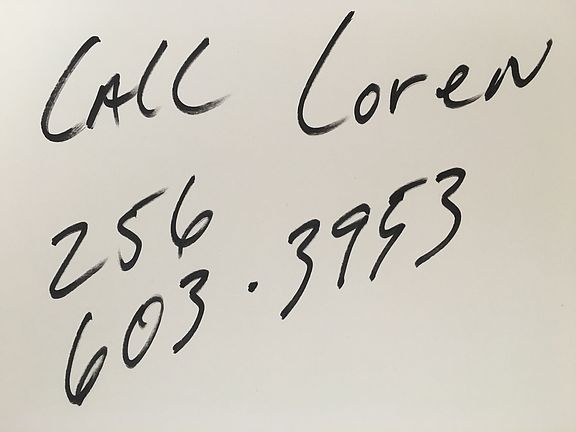 CALL Loren
256
603.3953